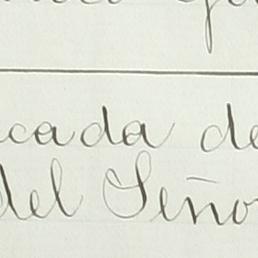 cada de
del Seño